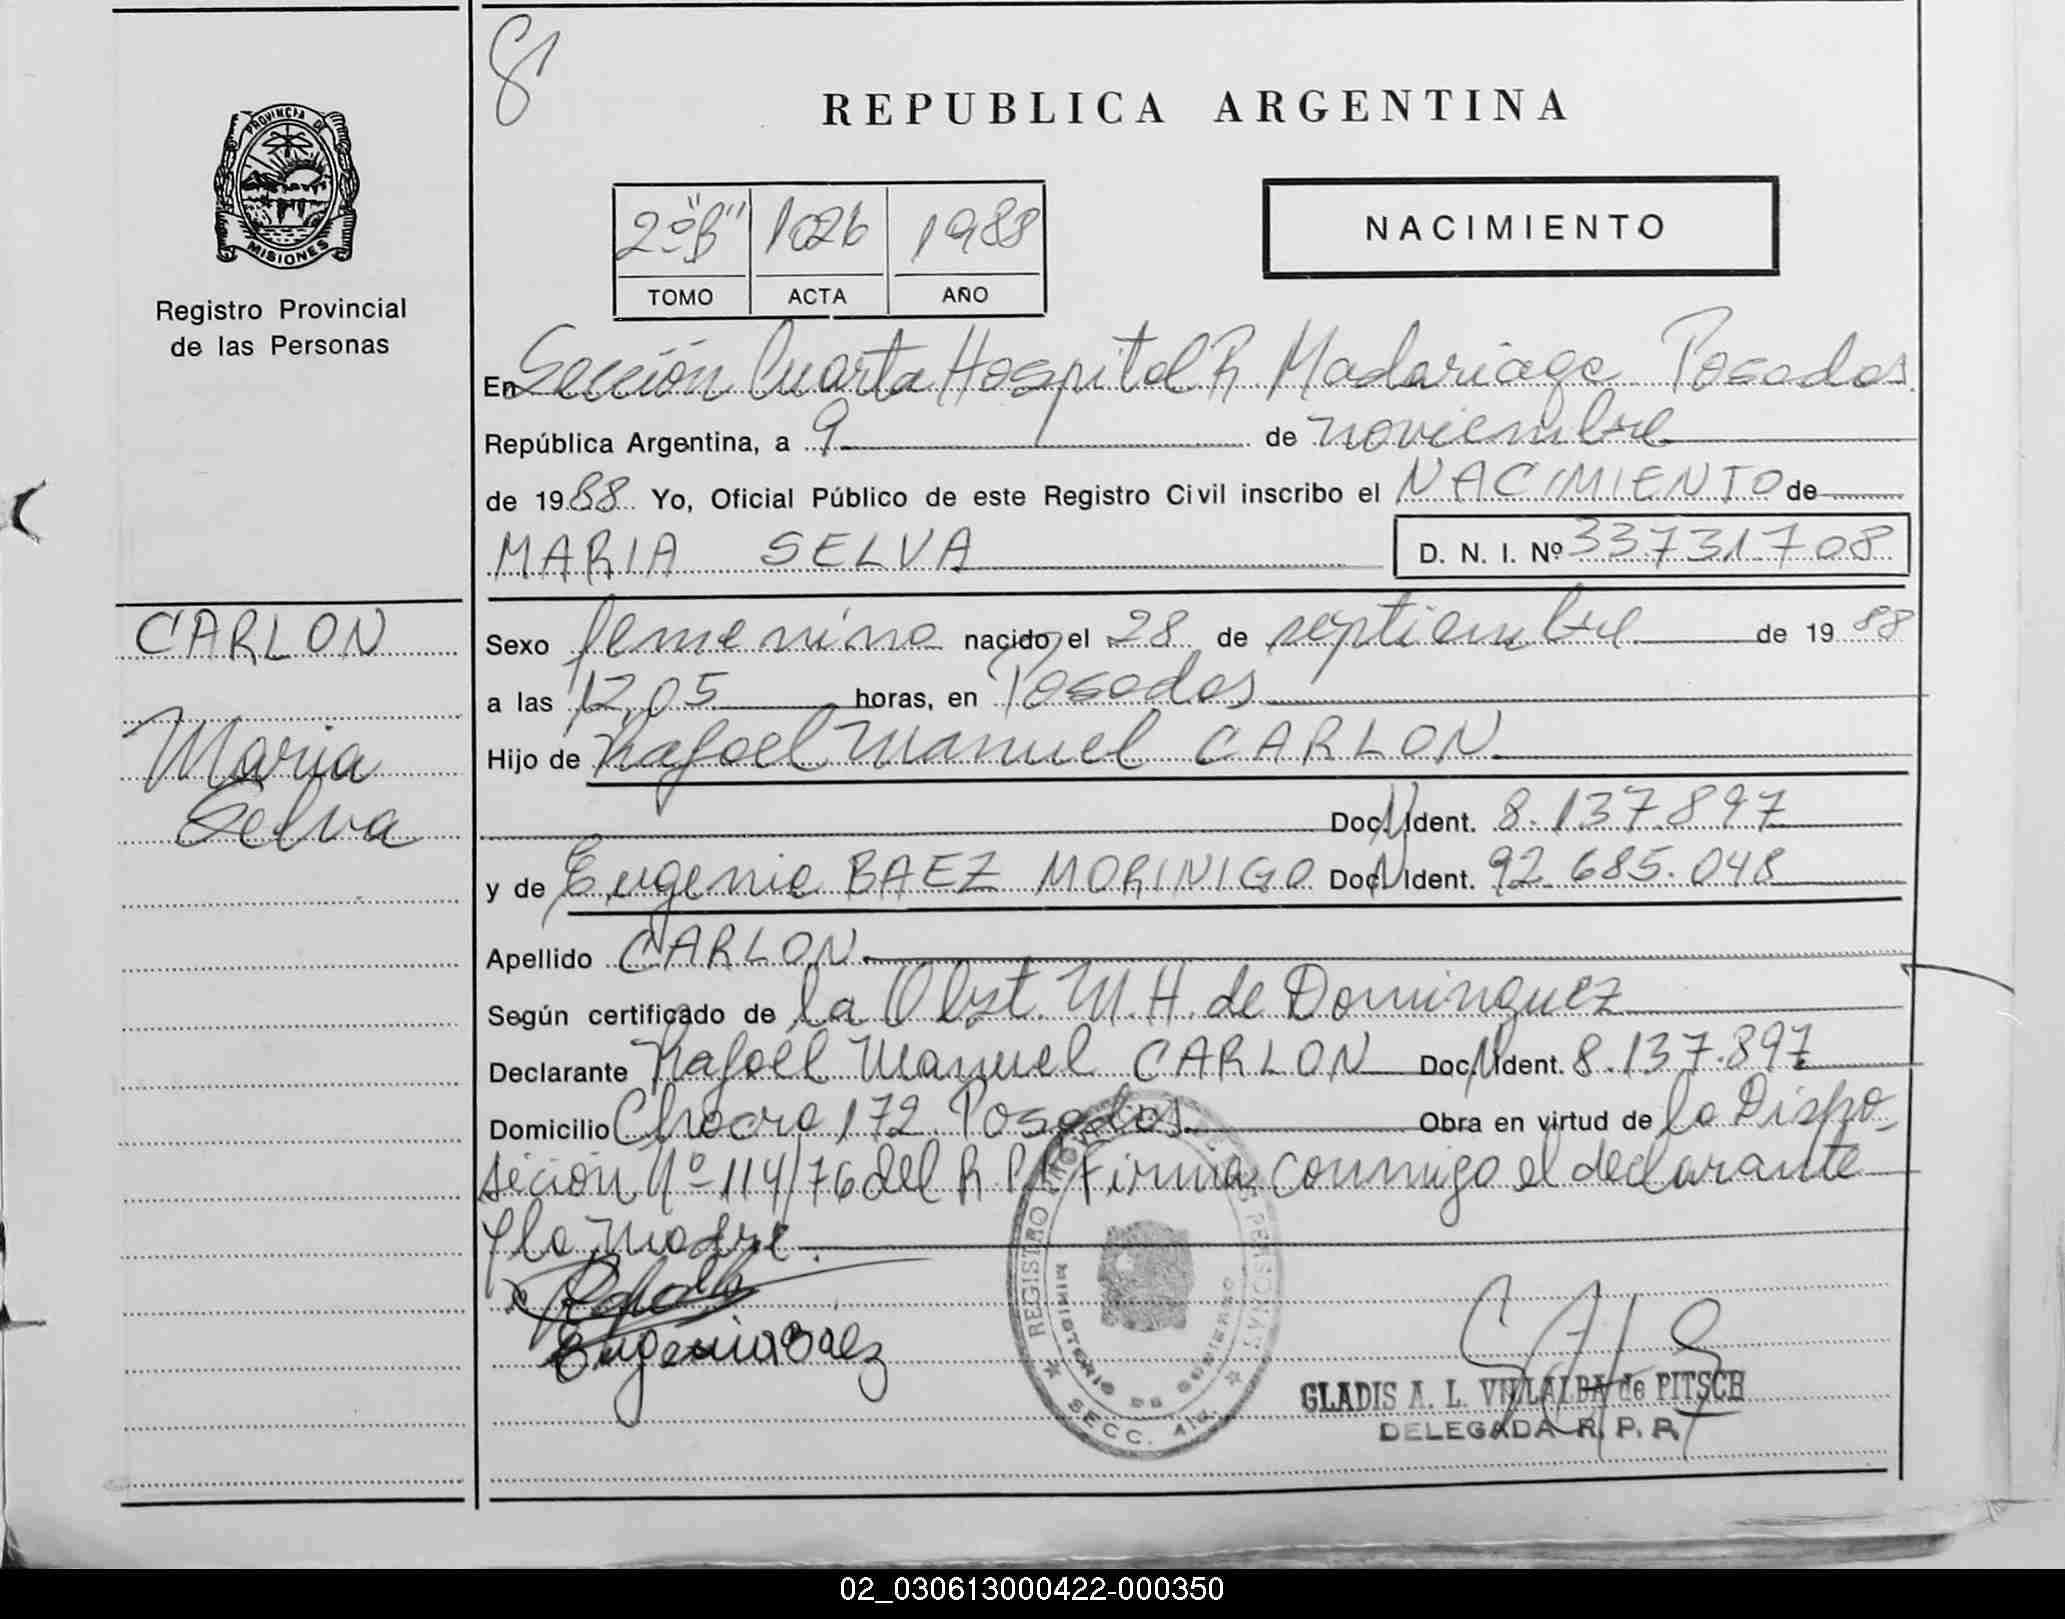 8
PROVINCIA DE
MISIONES
Registro Provincial
de las Personas
CARLON
Maria
Selva
REPUBLICA ARGENTINA
2º "B" 1026 1988
TOMO ACTA AÑO
NACIMIENTO
En Sección Cuarta Hospital R. Madariaga Posadas
República Argentina, a 9 de noviembre
de 1988 Yo, Oficial Público de este Registro Civil inscribo el NACIMIENTO de
MARIA SELVA D. N. I. Nº 33731708
Sexo femenino nacido el 28 de septiembre de 1988
a las 12,05 horas, en Posadas
Hijo de Rafael Manuel CARLON
Doc. Ident. 8.137.897
y de Eugenia BAEZ MORINIGO Doc. Ident. 92.685.048
Apellido CARLON
Según certificado de la Obst. M. H. de Dominguez
Declarante Rafael Manuel CARLON Doc. Ident. 8.137.897
Domicilio Chacra 172 Posadas Obra en virtud de la Dispo
sición Nº 114/76 del R.P.P. Firma conmigo el declarante
y la Madre.
Eugenia Baez
REGISTRO PERSONAS
MINISTERIO DE GOBIERNO
SECC. 4ta.
GLADIS A. L. VILLALBA de PITSCH
DELEGADA R. P. P.
02_030613000422-000350